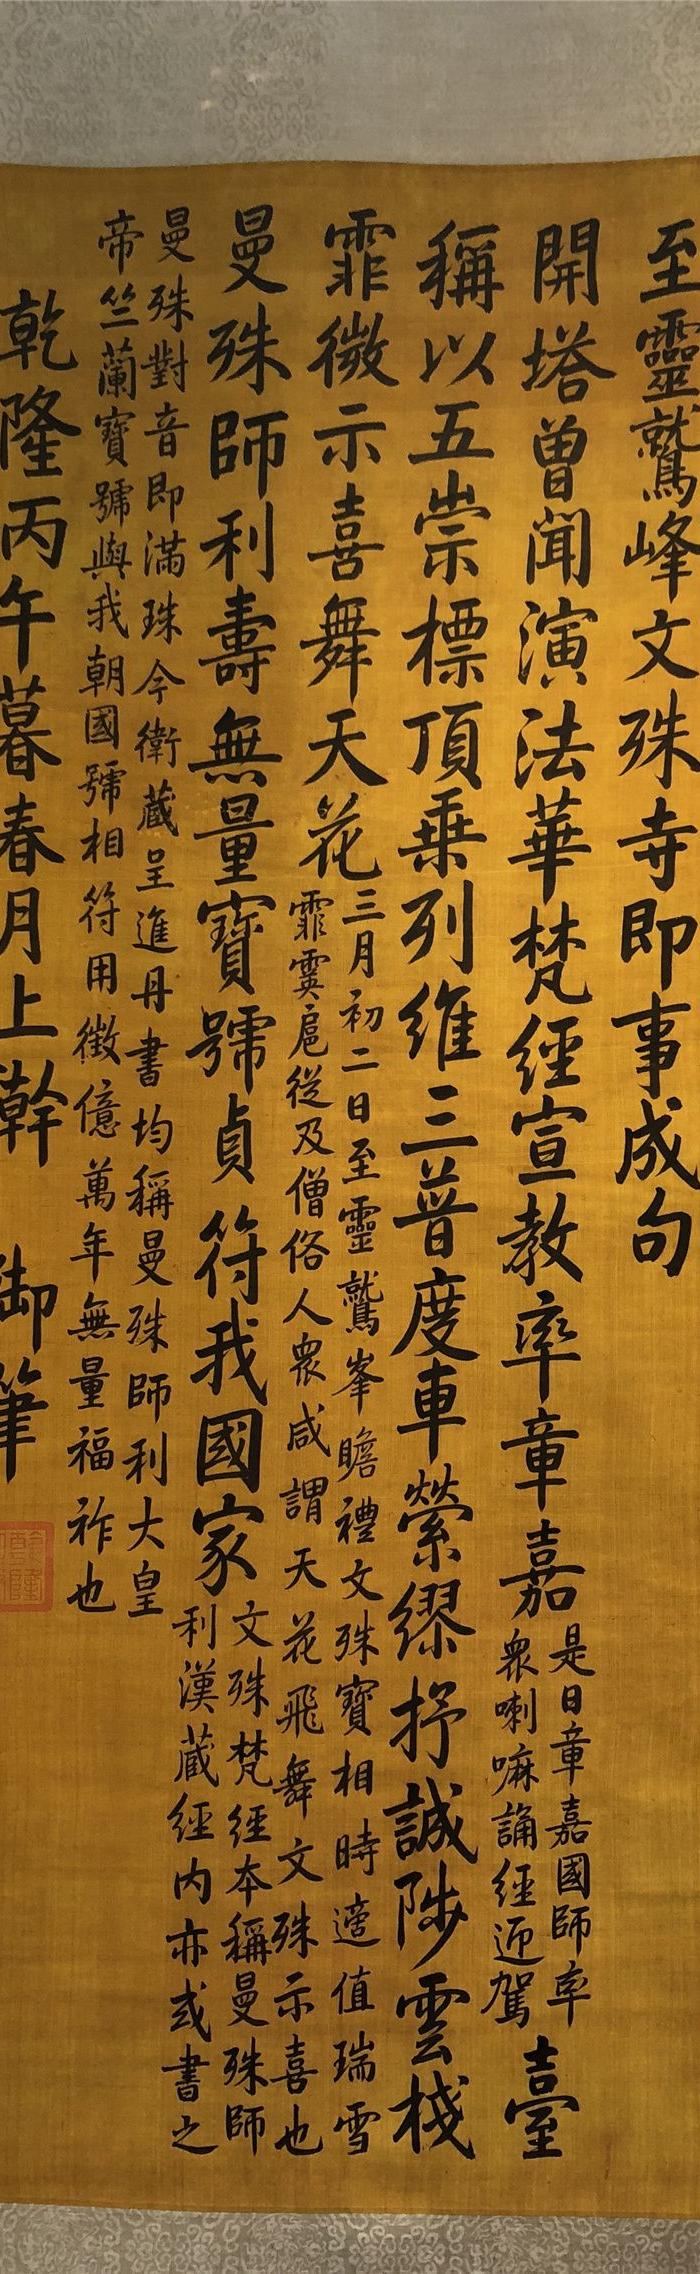 至靈鷲峰文殊寺即事成句
開塔曾聞演法華梵經宣教率章嘉
是日章嘉國師率
衆喇嘛誦經迎駕
臺
稱以五崇標頂乗列維三普度車縈繆抒誠陟雲棧
霏微示喜舞天花
三月初二日至靈鷲峯瞻禮文殊寶相時適值瑞雪
霏霙扈從及僧俗人衆咸謂天花飛舞文殊示喜也
曼殊師利壽無量寶號貞符我國家
文殊梵經本稱曼殊師
利漢蔵經内亦或書之
曼殊對音即滿珠今衛蔵呈進丹書均稱曼殊師利大皇
帝竺蘭寶號與我朝國號相符用徵億萬年無量福祚也
乾隆丙午暮春月上澣
御筆